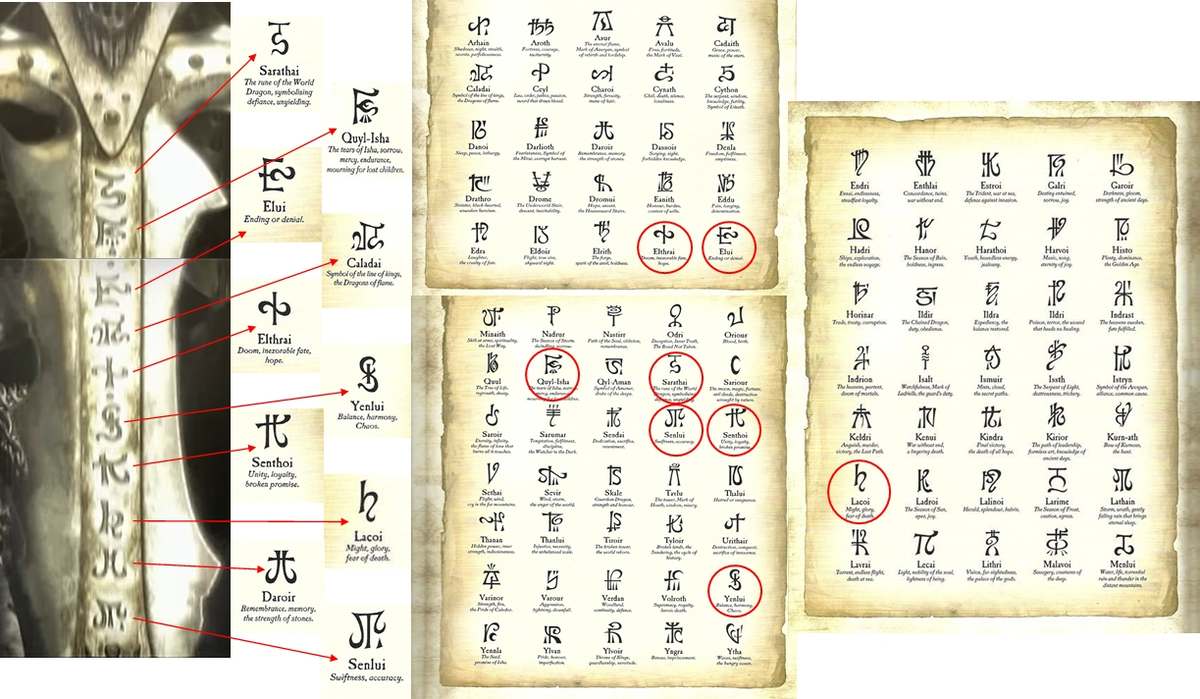 Sarathai
The rune of the World
Dragon, symbolising
defiance, unyielding.
Quyl-Isha
The tears of Isha, sorrow,
mercy, endurance,
mourning for lost children.
Elui
Ending or denial.
Caladai
Symbol of the line of kings,
the Dragons of flame.
Elthrai
Doom, inexorable fate,
hope.
Yenlui
Balance, harmony,
Chaos.
Senthoi
Unity, loyalty,
broken promise.
Lacoi
Might, glory,
fear of death.
Daroir
Remembrance, memory,
the strength of stones.
Senlui
Swiftness, accuracy.
Arhain
Shadows, night, stealth,
secrets, perfidiousness.
Aroth
Fortress, courage,
taciturnity.
Asur
The eternal flame,
Mark of Asuryan, symbol
of rebirth and kingship.
Avalu
Fires, fortitude,
the Mark of Vaul.
Cadaith
Grace, power,
music of the stars.
Caladai
Symbol of the line of kings,
the Dragons of flame.
Ceyl
Law, order, justice, passion,
sword that draws blood.
Charoi
Strength, ferocity,
mane of hair.
Cynath
Chill, death, silence,
loneliness.
Cython
The serpent, wisdom,
knowledge, futility,
Symbol of Lileath.
Danoi
Sleep, peace, lethargy.
Darlioth
Fearlessness, Symbol of
the Mirai, corrupt harvest.
Daroir
Remembrance, memory,
the strength of stones.
Dassoir
Scrying, sight,
forbidden knowledge.
Denla
Freedom, fulfilment,
emptiness.
Drathro
Sinister, black-hearted,
unwoken heroism.
Drome
The Underworld Stair,
descent, inevitability.
Dromui
Hope, ascent,
the Heavenward Stairs.
Eanith
Honour, burden,
contest of wills.
Eddu
Pain, longing,
determination.
Edra
Laughter,
the cruelty of fate.
Eldoir
Flight, true aim,
skyward sight.
Elreth
The forge,
spark of the soul, boldness.
Elthrai
Doom, inexorable fate,
hope.
Elui
Ending or denial.
Minaith
Skill at arms, spirituality,
the Lost Way.
Nadrur
The Season of Storm,
dwindling, sorrow.
Nastirr
Path of the Soul, oblivion,
remembrance.
Odri
Deception, Inner Truth,
The Road Not Taken.
Oriour
Blood, birth.
Quul
The Tree of Life,
regrowth, decay.
Quyl-Isha
The tears of Isha, sorrow,
mercy, endurance,
mourning for lost children.
Qyl-Aman
Symbol of Anurion,
drake of the deeps.
Sarathai
The rune of the World
Dragon, symbolising
defiance, unyielding.
Sariour
The moon, magic, fortune,
evil deeds, destruction
wrought by nature.
Saroir
Eternity, infinity,
the flame of love that
burns all it touches.
Sarumar
Temptation, fulfilment,
discipline,
the Watcher in the Dark.
Sendai
Dedication, sacrifice,
resentment.
Senlui
Swiftness, accuracy.
Senthoi
Unity, loyalty,
broken promise.
Sethai
Flight, wind,
cry in the far mountains.
Sevir
Wind, storm,
the anger of the world.
Skale
Guardian Dragon,
strength and honour.
Tavlu
The tower, Mark of
Hoeth, wisdom, misery.
Thalui
Hatred or vengeance.
Thanan
Hidden power, inner
strength, industriousness.
Thanlui
Injustice, necessity,
the unbalanced scale.
Tiroir
The broken tower,
the world return.
Tyloir
Broken lands, the
Sundering, the cycle of
history.
Urithair
Destruction, conquest,
sacrifice of innocence.
Varinor
Strength, fire,
the Pride of Caledor.
Varour
Aggression,
lightning, downfall.
Verdan
Woodland,
continuity, defence.
Volroth
Supremacy, royalty,
heroic death.
Yenlui
Balance, harmony,
Chaos.
Yennla
The Seed,
promise of Isha.
Ylvan
Pride, honour,
imperfection.
Ylvoir
Throne of Kings,
guardianship, servitude.
Yngra
Rescue, imprisonment.
Ytha
Waves, swiftness,
the hungry ocean.
Endri
Ennui, endlessness,
steadfast loyalty.
Enthlai
Concordance, twins,
war without end.
Estroi
The Trident, war at sea,
defence against invasion.
Galri
Destiny entwined,
sorrow, joy.
Garoir
Darkness, gloom,
strength of ancient days.
Hadri
Ships, exploration,
the endless voyage.
Hanor
The Season of Rain,
boldness, ingress.
Harathoi
Youth, boundless energy,
jealousy.
Harvoi
Music, song,
eternity of joy.
Histo
Plenty, dominance,
the Golden Age.
Horinar
Trade, treaty, corruption.
Ildir
The Chained Dragon,
duty, obedience.
Ildra
Expediency, the
balance restored.
Ildri
Poison, terror, the wound
that heals no healing.
Indrast
The heavens awoken,
fate fulfilled.
Indrion
The heavens, portent,
doom of mortals.
Isalt
Watchfulness, Mark of
Ladrielle, the guard's duty.
Ismuir
Mists, cloud,
the secret paths.
Issth
The Serpent of Light,
destructiveness, trickery.
Istryn
Symbol of the Aecopian,
alliance, common cause.
Keldri
Anguish, murder,
victory, the Lost Path.
Kenui
War without end,
a lingering death.
Kindra
Final victory,
the death of all hope.
Kirior
The path of leadership,
formless art, knowledge of
ancient days.
Kurn-ath
Bow of Kurnous,
the hunt.
Lacoi
Might, glory,
fear of death.
Ladroi
The Season of Sun,
apex, joy.
Lalinoi
Herald, splendour, hubris.
Larime
The Season of Frost,
caution, egress.
Lathain
Storm, wrath, gently
falling rain that brings
eternal sleep.
Lavrai
Torrent, endless flight,
death at sea.
Lecai
Light, nobility of the soul,
lightness of being.
Lithri
Vision, far-sightedness,
the palace of the gods.
Malavoi
Sorcery, creatures of
the deep.
Menlui
Water, life, torrential
rain and thunder in the
distant mountains.